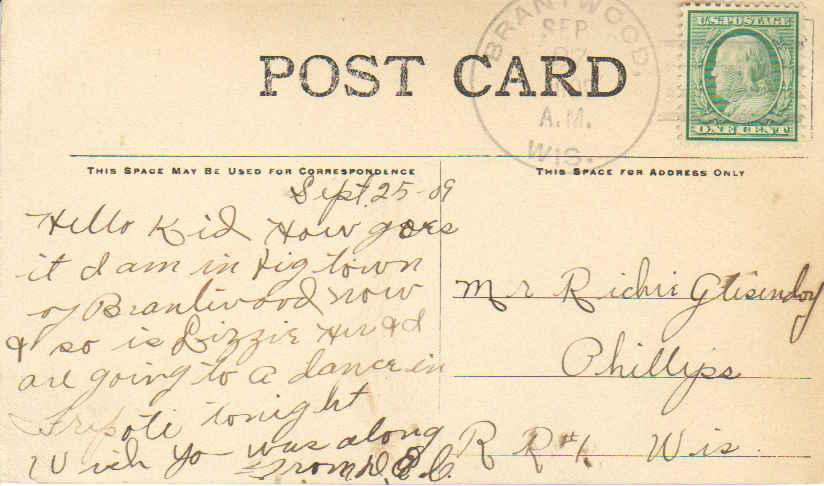 U.S. POSTAGE
ONE CENT
BRANTWOOD,
SEP
A.M.
WIS.
POST CARD
THIS SPACE MAY BE USED FOR CORRESPONDENCE
THIS SPACE FOR ADDRESS ONLY
Sept. 25-09
Hello Kid How goes
it I am in big town
of Brantwood now
& so is Lizzie Her & I
are going to a dance in
Tripoli tonight
Wish yo was along
From
Mr Richie
Phillips
R R #1. Wis.